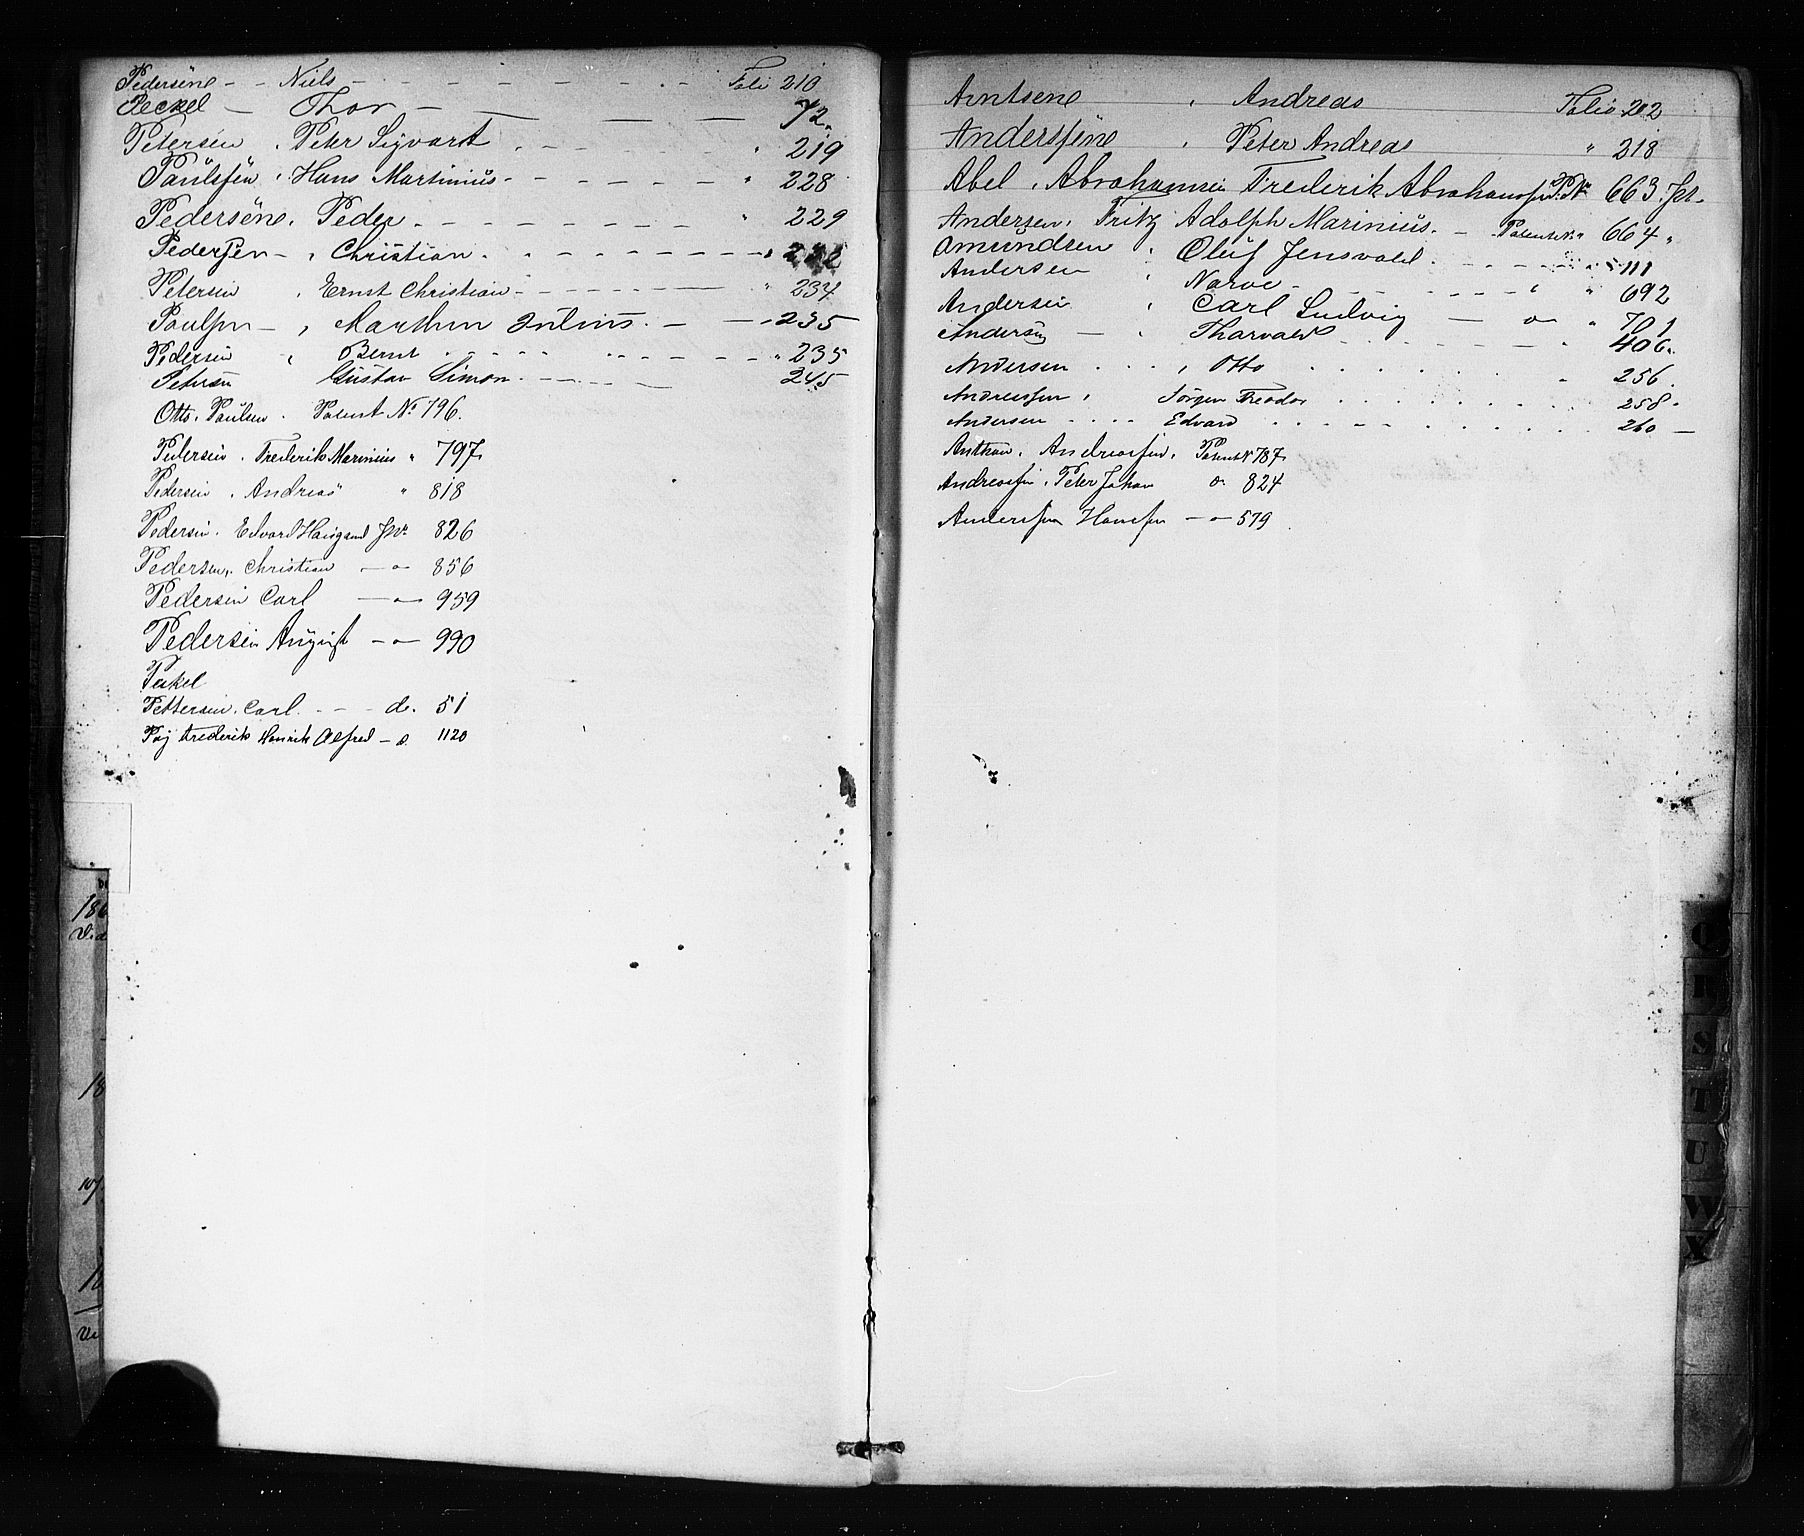 Pedersene - - Niels - - - - - - Folio 210
Peckel - Thor - - - 72.
Petersen , Peter Sigvart . - - - " 219
Paulssen , Hans Martinius - - - - - " 228
Pedersene . Peder - - - - - - " 229
Pederssen - , Christian . - - - - - -
Petersen , Ernst Christian - - - - " 234
Paulsen - , Marthin Julius . - - " 235
Pedersen , Bernt . . . . . . - - - " 235
Petersen Gustav Simon . - - - . . 245
Otto . Paulsen . Patent No 796.
Pedersen . Frederik Marinius " 797
Pedersen . Andreas " 818
Pedersen . Edvard 826
Pedersen . Christian - " - 856
Pedersen Carl - " - 959
Pedersen August - " - 990
Peckel
Pettersen . Carl . - - - do. 51
Frederik Henrik Alfred - d. 1120
Arntsene , Andreas Folio 202
Anderssene , Peter Andreas " 218
Abel . Abrahamsen Frederik Abrahamssen P.No 663.
Andersen . Fritz Adolph Marinius . - Patent No " 664 "
Amundsen , Oluf Jensvold . - - - -
Andersen , Narve - - - - - " " 692
Andersen , Carl Ludvig - o - " 701
Andersen - , Tharvald . - - - - 406.
Andersen . . . , Otto . . . . . . 256 .
Andreassen , Jørgen Theodor . . . . . . . 258 .
Andersen . . . . Edvard . . . . . . . . 260 -
Anthon . Andreassen . Patent No 787
Andreassen . Peter Johan o. 824
Anderssen Hanssen - o - 579
C
R
S
T
U
W
X